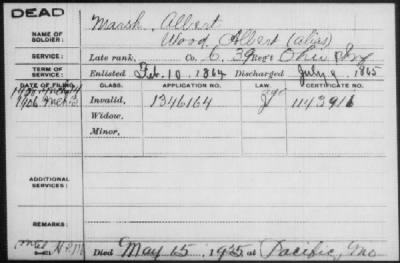 DEAD
NAME OF SOLDIER: Marsh, Albert
Wood, Albert (alias)
SERVICE: Late rank, Co. G. 39 Reg't Ohio Inf
TERM OF SERVICE: Enlisted Feb. 10, 1864 Discharged July 9, 1865
DATE OF FILING. CLASS. APPLICATION NO. LAW. CERTIFICATE NO.
Invalid, 1346164 1143916
1906
Widow,
Minor,
ADDITIONAL SERVICES:
REMARKS:
Died May 15, 1925 at Pacific, Mo